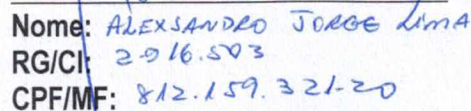 Nome: ALEXSANDRO JORGE LIMA
RG/CI: 2916.503
CPF/MF: 812.159.321-20